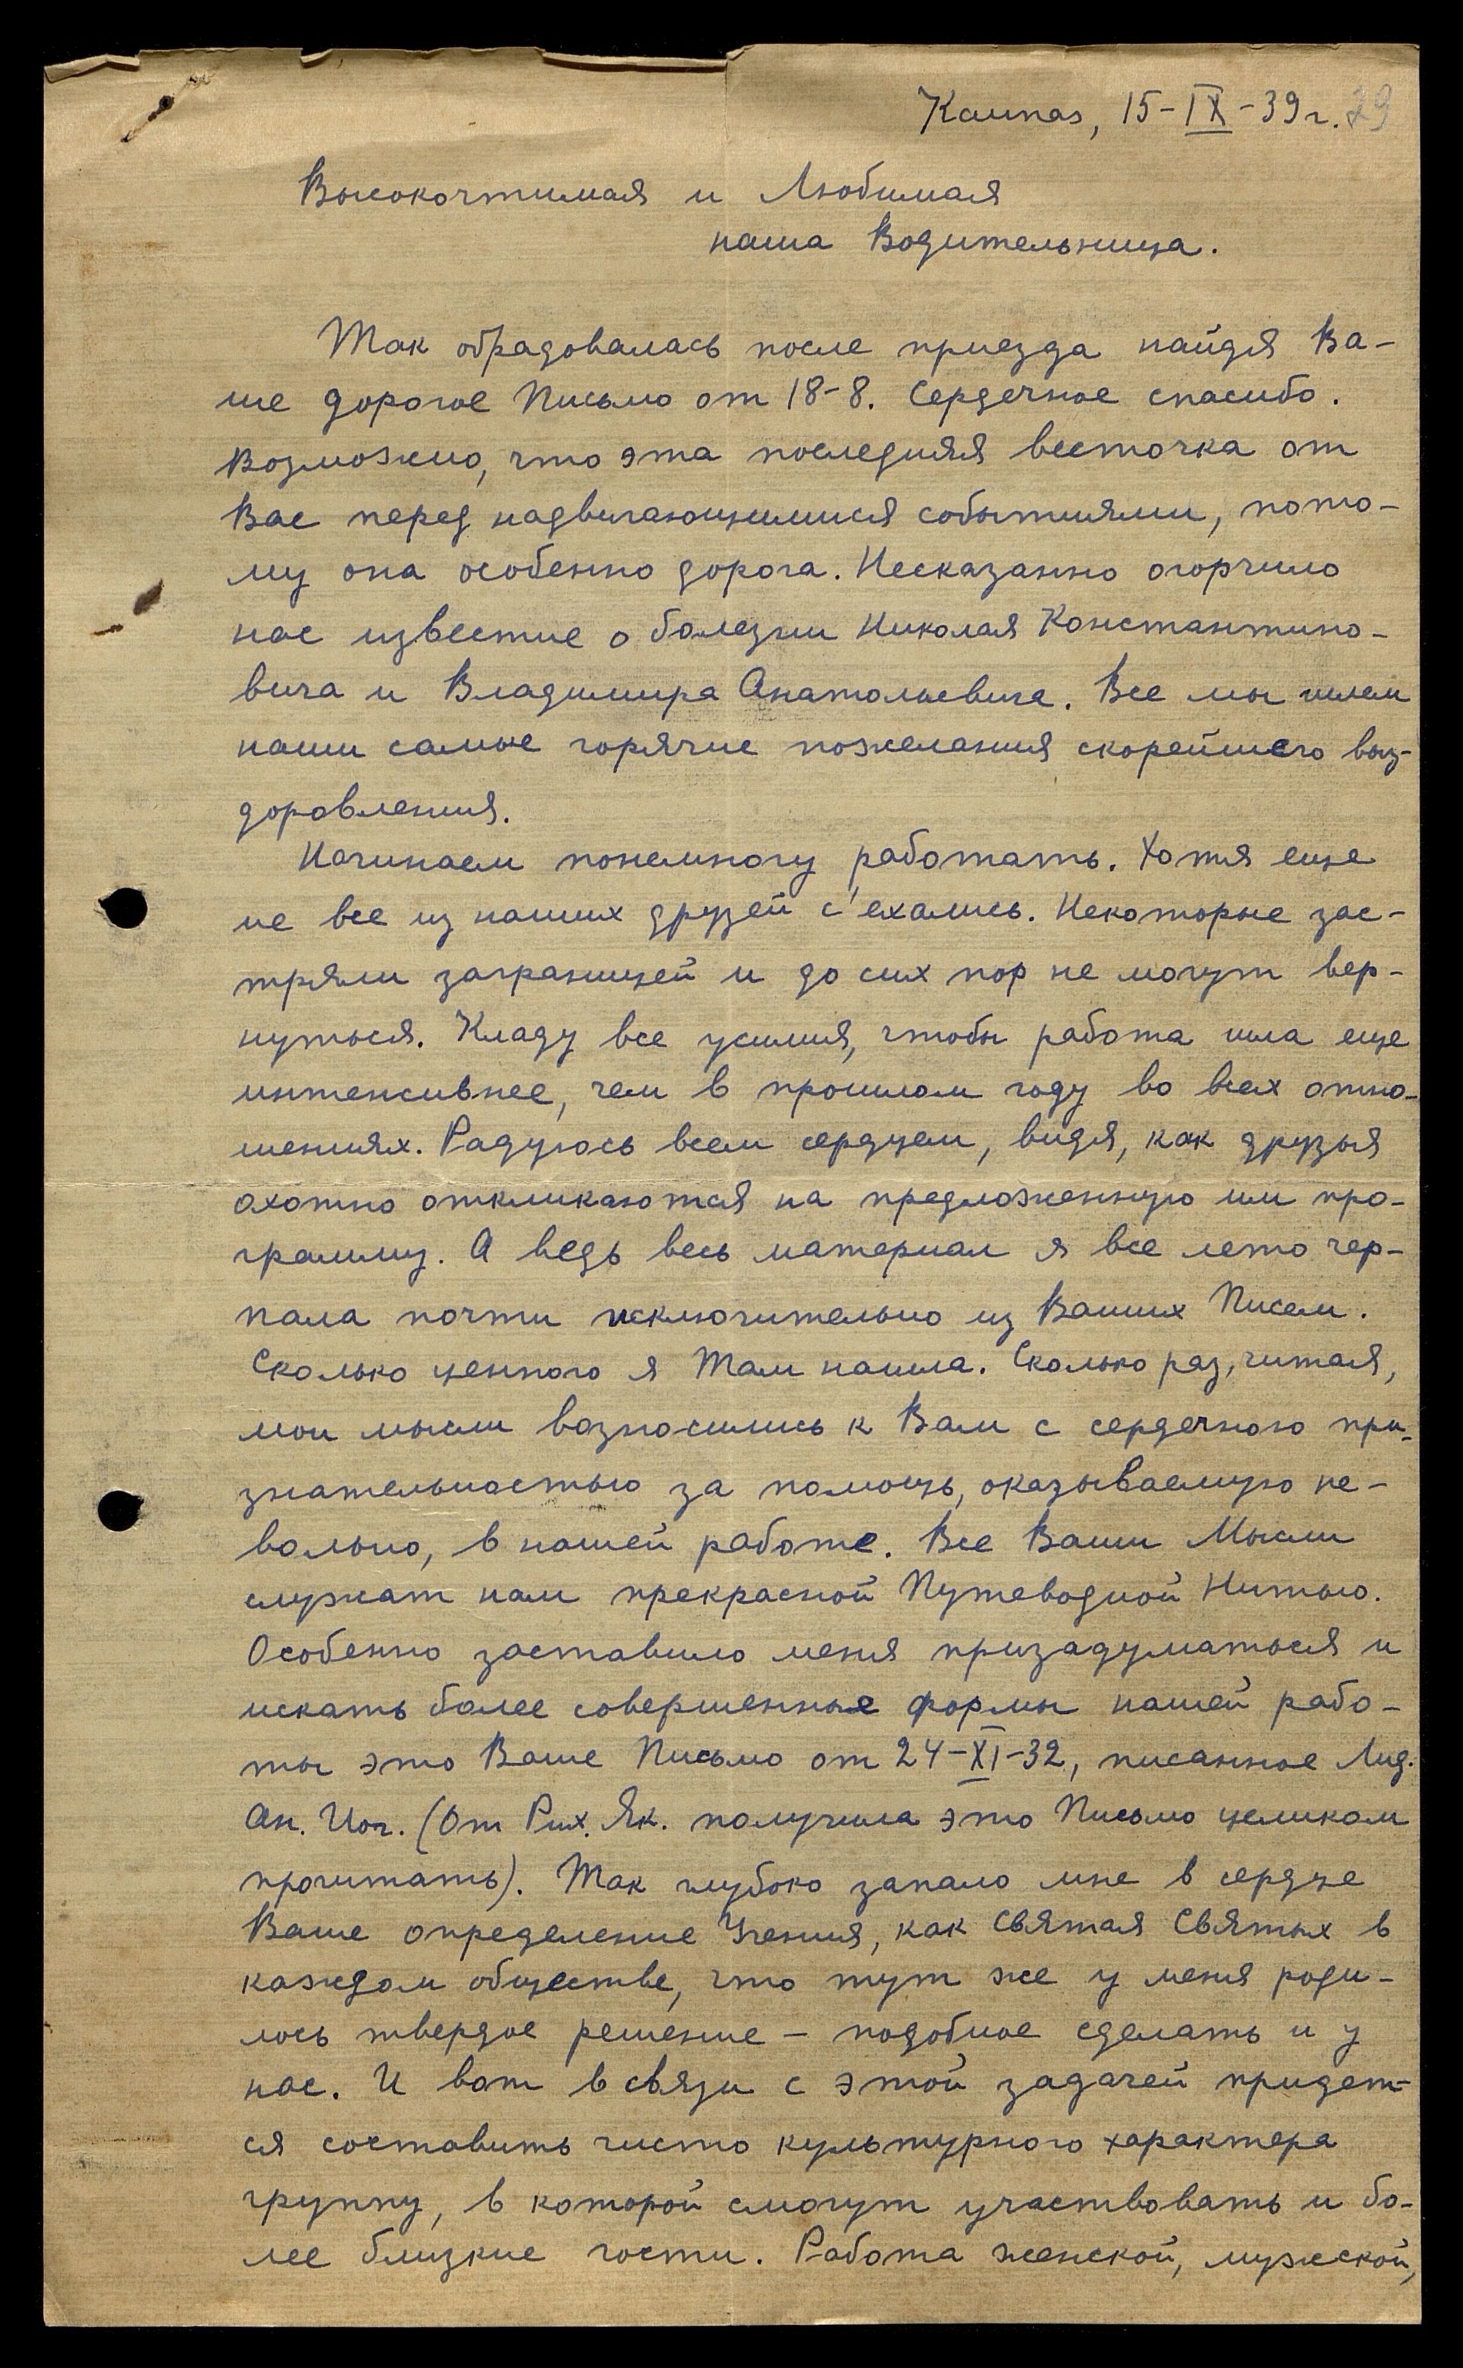 Kaunas, 15-IX-39 г. 29
Высокочтимая и Любимая
наша Водительница.
Так обрадовалась после приезда найдя Ва-
ше дорогое Письмо от 18-8. Сердечное спасибо.
Возможно, что эта последняя весточка от
Вас перед надвигающимися событиями, пото-
му она особенно дорога. Несказанно огорчило
нас известие о болезни Николая Константино-
вича и Владимира Анатольевича. Все мы шлем
наши самые горячие пожелания скорейшего выз-
доровления.
Начинаем понемногу работать. Хотя еще
не все из наших друзей с'ехались. Некоторые зас-
тряли заграницей и до сих пор не могут вер-
нуться. Кладу все усилия, чтобы работа шла еще
интенсивнее, чем в прошлом году во всех отно-
шениях. Радуюсь всем сердцем, видя, как друзья
охотно откликаются на предложенную им про-
грамму. А ведь весь материал я все лето чер-
пала почти исключительно из Ваших Писем.
Сколько ценного я Там нашла. Сколько раз, читая,
мои мысли возносились к Вам с сердечного при-
знательностью за помощь, оказываемую не-
вольно, в нашей работе. Все Ваши Мысли
служат нам прекрасной Путеводной Нитью.
Особенно заставило меня призадуматься и
искать более совершенные формы нашей рабо-
ты это Ваше Письмо от 24-XI-32, писанное Лид.
Ан. Иог. (От Рих. Як. получила это Письмо целиком
прочитать). Так глубоко запало мне в сердце
Ваше определение Учения, как Святая Святых в
каждом обществе, что тут же у меня роди-
лось твердое решение – подобное сделать и у
нас. И вот в связи с этой задачей придет-
ся составить чисто культурного характера
группу, в которой смогут участвовать и бо-
лее близкие гости. Работа женской, мужской,